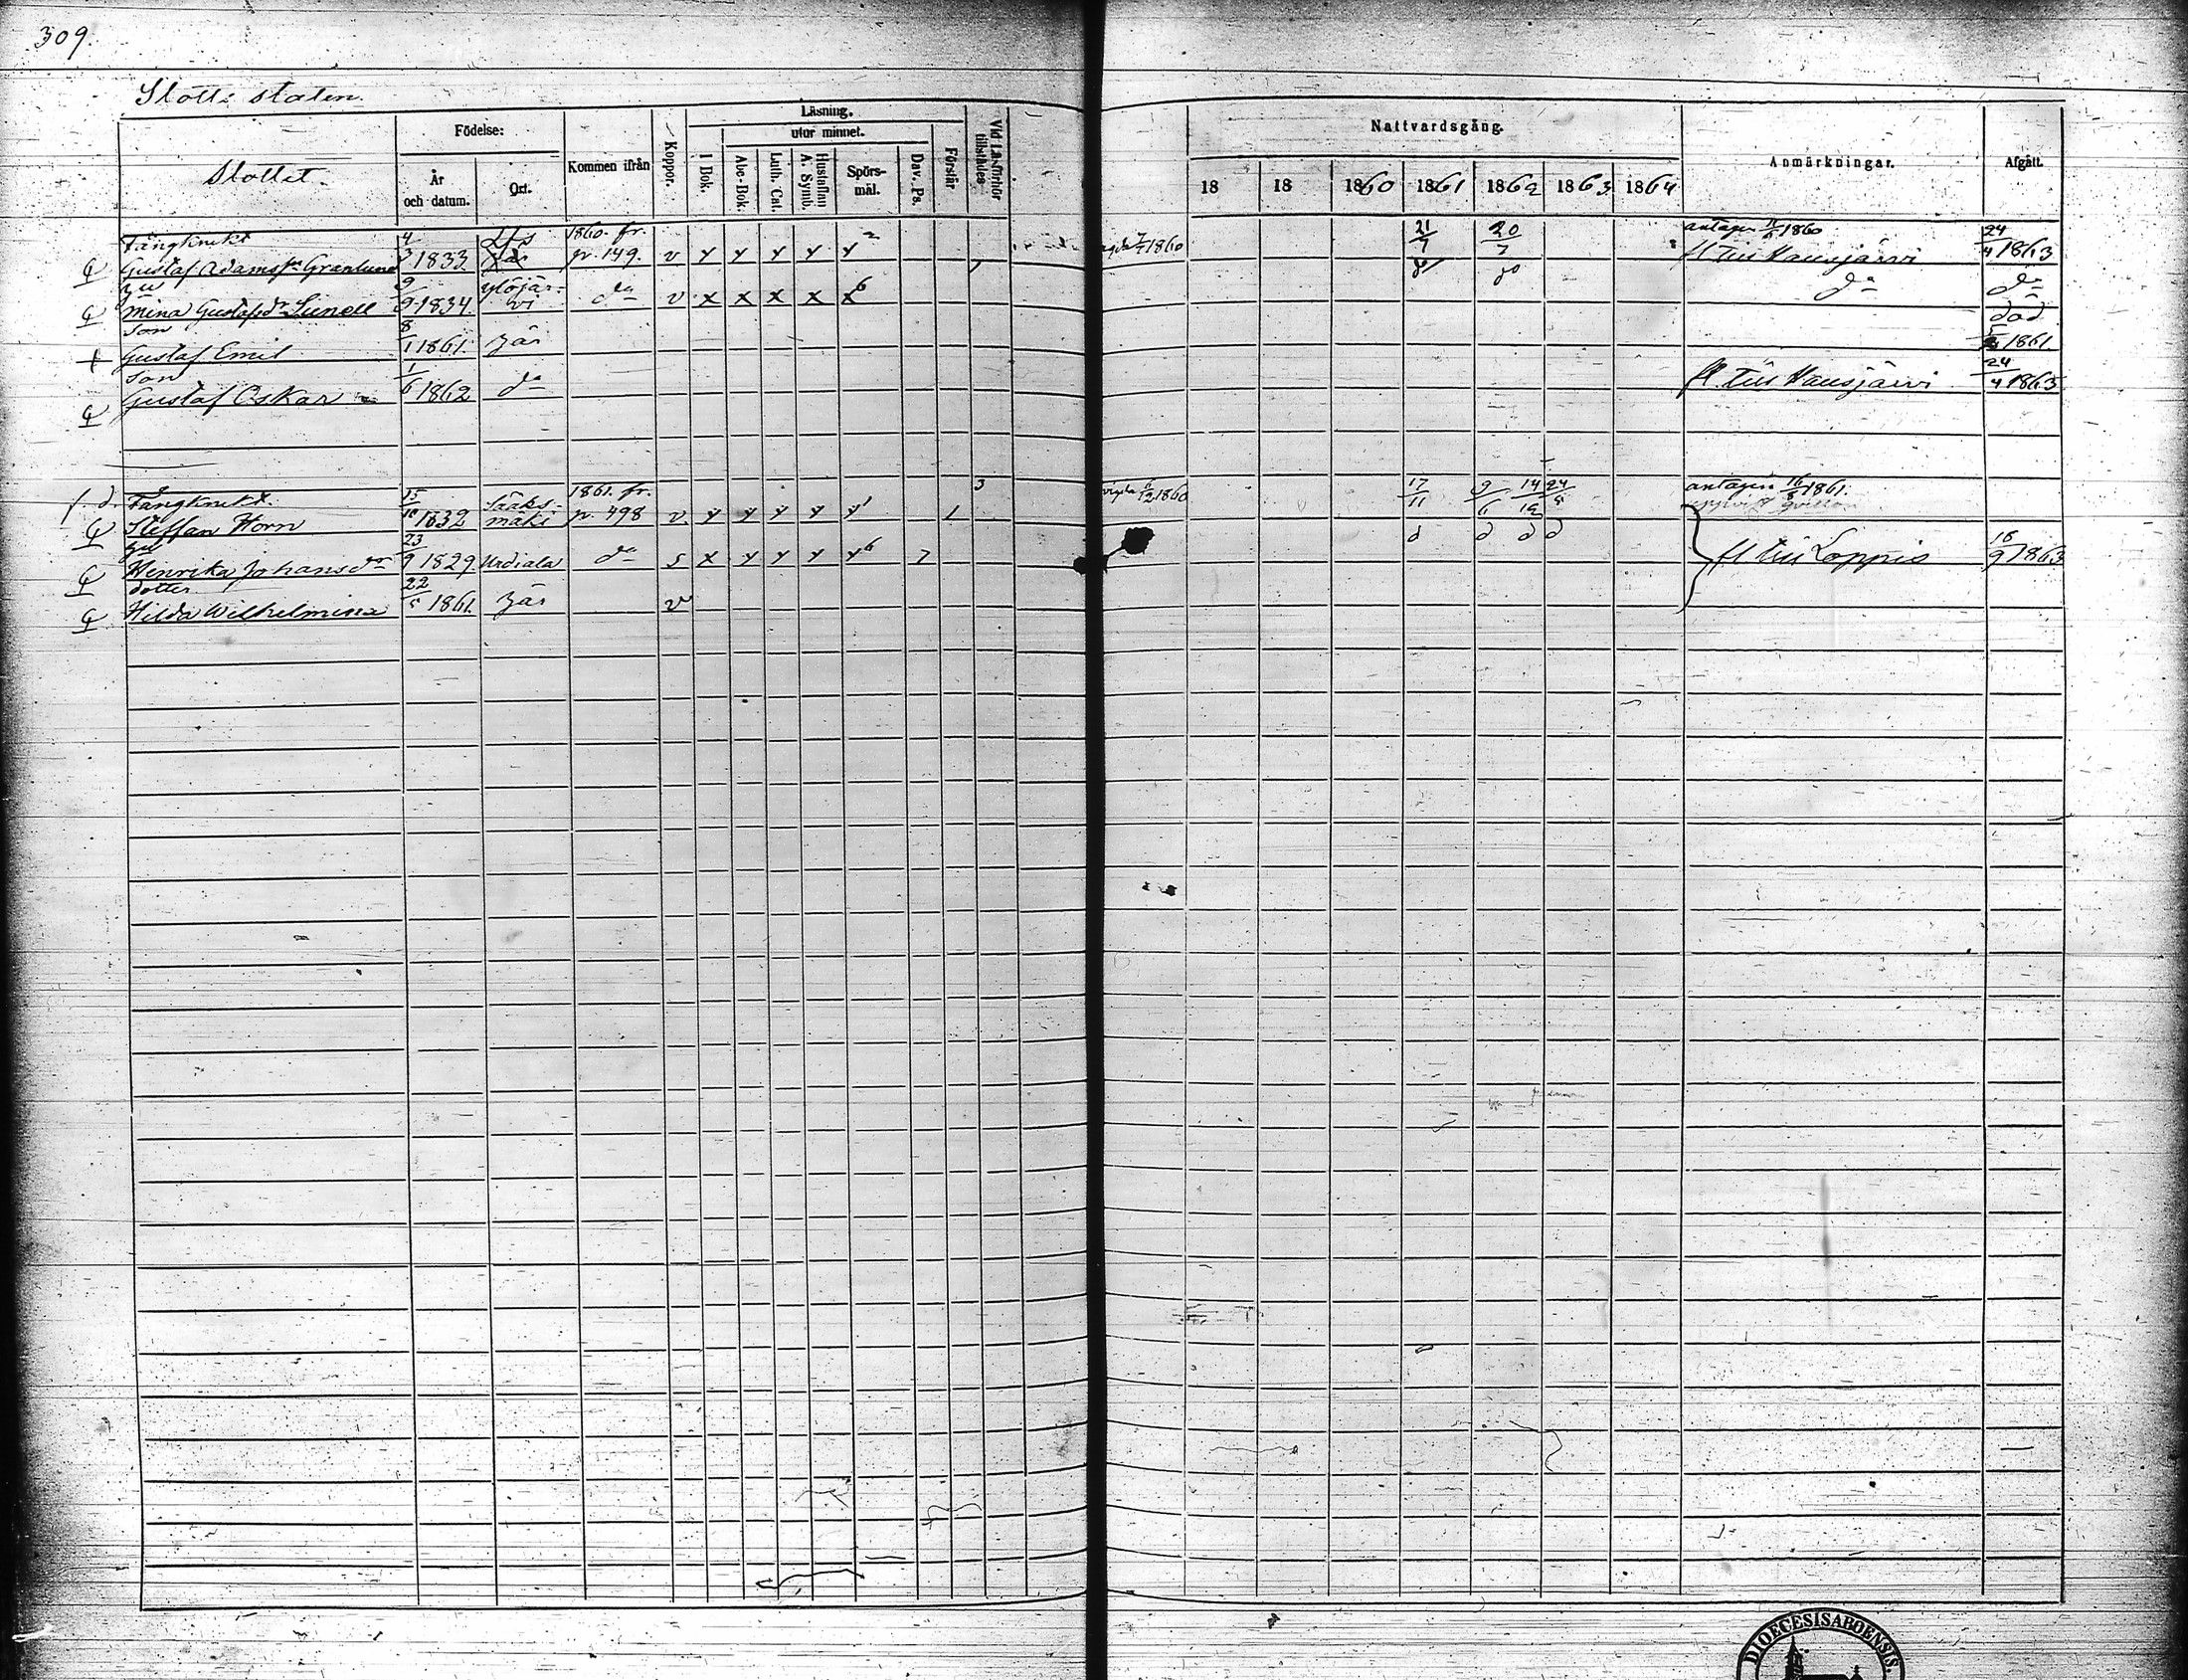 309.
Slotts staten.
Slottet.
Födelse:
År och datum.
Ort.
Kommen ifrån
Koppor.
Läsning.
utur minnet.
I Bok.
Abc-Bok.
Luth. Cat.
Hustaflan A. Symb.
Spörs-mål.
Dav. Ps.
Förstår
Vid Läsförhör tillstädes
Nattvardsgång.
18 18 1860 1861 1862 1863 1864
Anmärkningar.
Afgått.
Fångknekt 4 1860. fr. 2 21/7 20/7 antagen 1860 24
Gustaf Adamsson Granlund 3 1833 p. 149. v y y y y y 1860 fl till Hausjärvi 4 1863
hu 9 Ylöjär- 6
Mina Gustafsdr Sunell 9 1834. vi do v x x x x x do do
son 8 död
+ Gustaf Emil 1 1861. här 5 1861
son 1 24
Gustaf Oskar 6 1862 do fl. till Hausjärvi 4 1863
Fångknekt. 15 Sääks- 1861. fr. 3 1860 17/11 9/6 14/12 24 antagen 16/8 1861.
Steffan Horn 10 1832 mäki p. 498 v. y y y y y 1
hu 23 18
Henrika Johansdr 9 1829 Urdiala do s x y y y y 6 7 fl till Loppis 9 1863
dotter 22
Hilda Wilhelmina 5 1861 här v
DIOECESIS ABOENSIS.